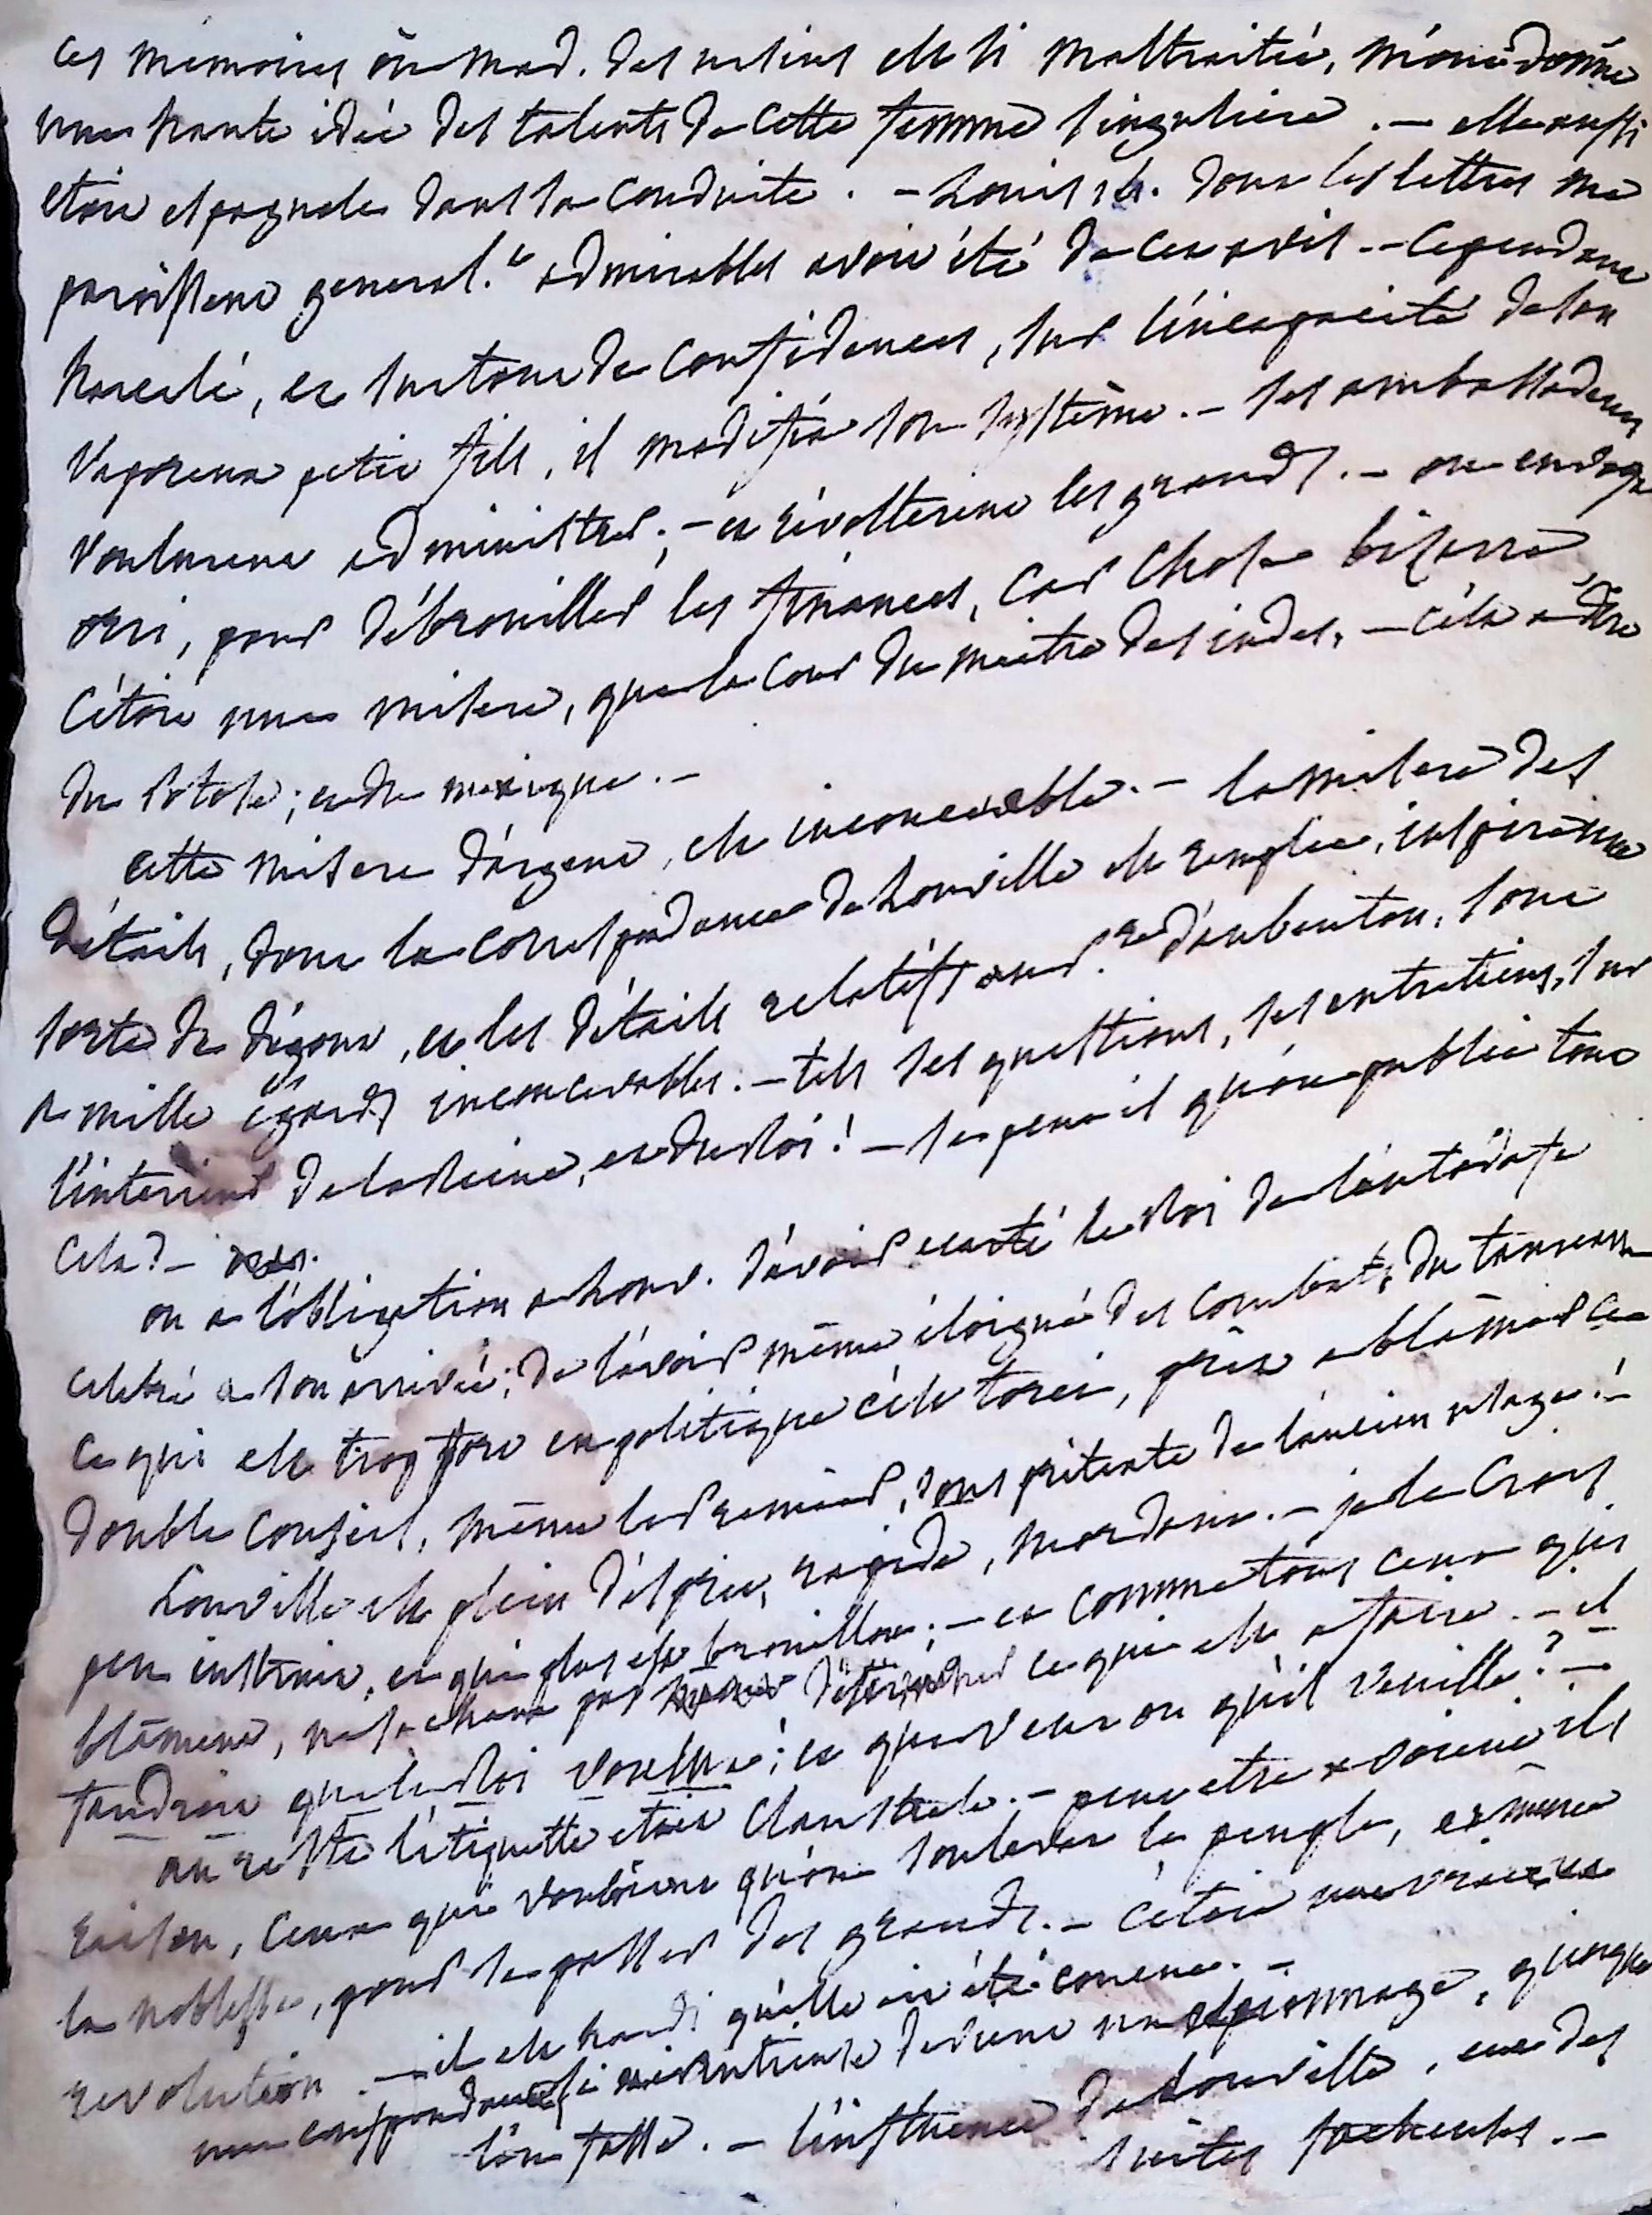 Ces mémoires ou Mad. des ursins est si maltraitée, m'ont donné
une haute idée des talents de cette femme singuliere. — elle aussi
etoit espagnole dans sa conduite. — Louis 14. dont les lettres me
paroissent general.t admirables avoit été de cet avis. — Cependant
harcelé, et surtout de confidences, sur l'incapacité de son
vaporeux petit fils, il modifia son système. — ses ambassadeurs
voulurent administrer; — et révolterent les grands. — on envoya
orri, pour débrouiller les finances, car chose bizarre
c'étoit une misere, que la cour du maitre des indes, — c'est a dire
du Potose; et du mexique. —
cette misere d'argent, est inconcevable. — la misere des
détails, dont la correspondance de Louville est remplie, inspire une
sorte de dégout, et les détails relatifs au P.re daubenton, sont
a mille égards inconcevables. — tels ses questions, ses entretiens, sur
l'interieur de la Reine, et du Roi! — se peut il qu'on publie tout
cela? —
on a l'obligation a Louv. d'avoir ecarté le Roi de l'autodafe
celebré a son arrivée; de l'avoir même éloigné des combats du taureau
ce qui est trop fort en politique c'est torci, prêt a blâmer ce
double conseil, même le premier, sous prétexte de l'ancien usage! —
Louville est plein d'esprit, rapide, mordant. — je le crois
peu instruit, et qui plus est brouillon; — et comme tous ceux qui
blâment, ne sachant pas déterminer ce qui est a faire. — il
faudroit que le Roi voulut; et que veut on qu'il veuille? —
au reste l'étiquette etoit claustrale. — peut etre avoient ils
raison, ceux qui vouloient qu'on soulevat le peuple, et même
la noblesse, pour se passer des grands. — C'étoit une vraie
revolution. — il est hardi qu'elle ait été concue. —
une correspondance si devient un espionnage, quoique
l'on fasse. — l'influence de Louville, eut des
suites facheuses. —